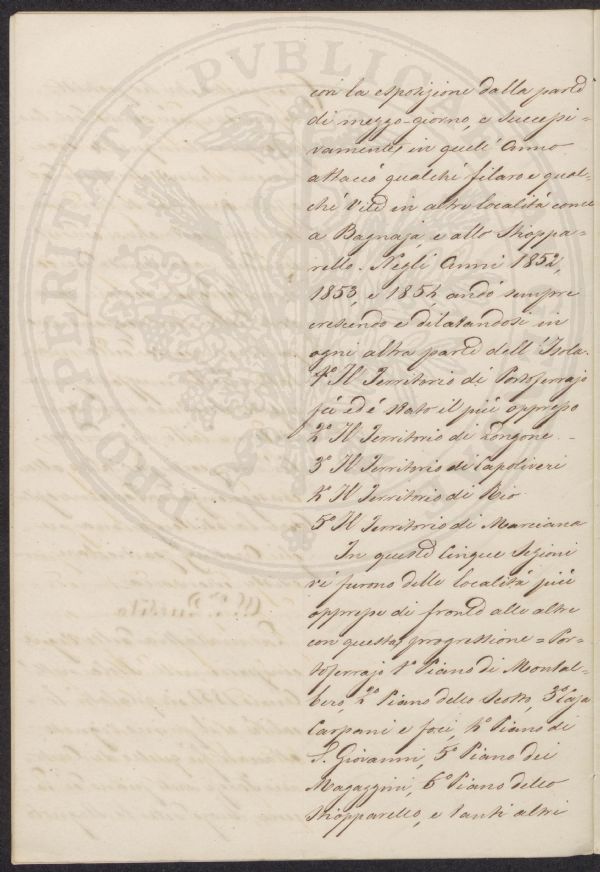 PROSPERITATI PVBLICAE
con la esposizione dalla parte
di mezzo-giorno, e successi=
vamente, in quell'anno
attaccò qualche filare e qual=
che Vite in altre località come
a Bagnaja, e allo Schioppa=
rello. Negli Anni 1852,
1853, e 1854 andò sempre
crescendo e dilatandosi in
ogni altra parte dell'Isola.
1° Il Territorio di Portoferrajo
fù ed è stato il più oppresso
2° Il Territorio di Longone
3° Il Territorio di Capoliveri
4° Il Territorio di Rio
5° Il Territorio di Marciana
In queste Cinque Sezioni
vi furono delle località più
oppresse di fronte alle altre
con questa progressione = Por=
toferrajo 1° Piano di Montal=
bero, 2° Piano dello Scotto, 3° Casa
Carpani e foci, 4° Piano di
S. Giovanni, 5° Piano dei
Magazzini, 6° Piano dello
Schiopparello, e tanti altri